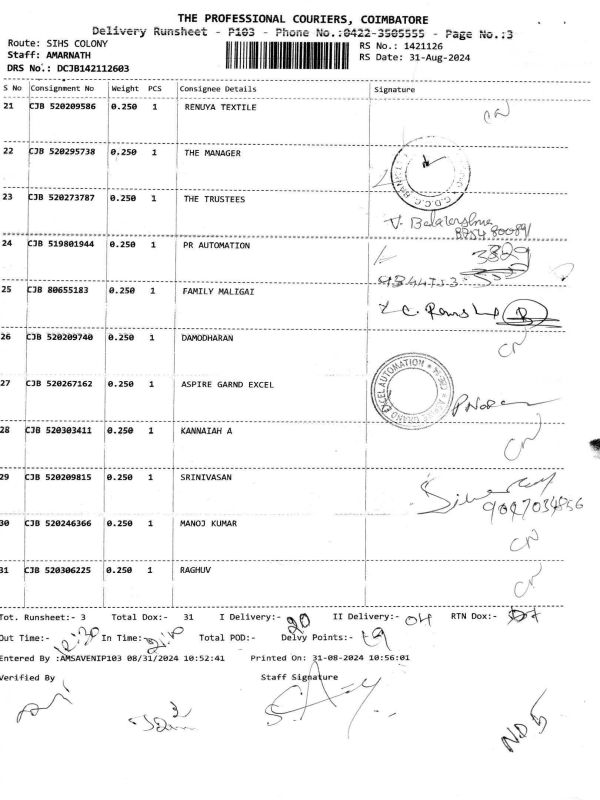 THE PROFESSIONAL COURIERS, COIMBATORE
Delivery Runsheet - P103 - Phone No.:0422-3505555 - Page No.:3
Route: SIHS COLONY RS No.: 1421126
Staff: AMARNATH RS Date: 31-Aug-2024
DRS No.: DCJB142112603
S No Consignment No Weight PCS Consignee Details Signature
21 CJB 520209586 0.250 1 RENUYA TEXTILE CN
22 CJB 520295738 0.250 1 THE MANAGER
23 CJB 520273787 0.250 1 THE TRUSTEES
24 CJB 519801944 0.250 1 PR AUTOMATION
25 CJB 80655183 0.250 1 FAMILY MALIGAI
26 CJB 520209740 0.250 1 DAMODHARAN CN
27 CJB 520267162 0.250 1 ASPIRE GARND EXCEL
28 CJB 520303411 0.250 1 KANNAIAH A CN
29 CJB 520209815 0.250 1 SRINIVASAN
30 CJB 520246366 0.250 1 MANOJ KUMAR CN
31 CJB 520306225 0.250 1 RAGHUV CN
Tot. Runsheet:- 3 Total Dox:- 31 I Delivery:- 20 II Delivery:- 04 RTN Dox:-
Out Time:- 12:30 In Time:- Total POD:- Delvy Points:- 19
Entered By :AMSAVENIP103 08/31/2024 10:52:41 Printed On: 31-08-2024 10:56:01
Verified By Staff Signature
ND 5